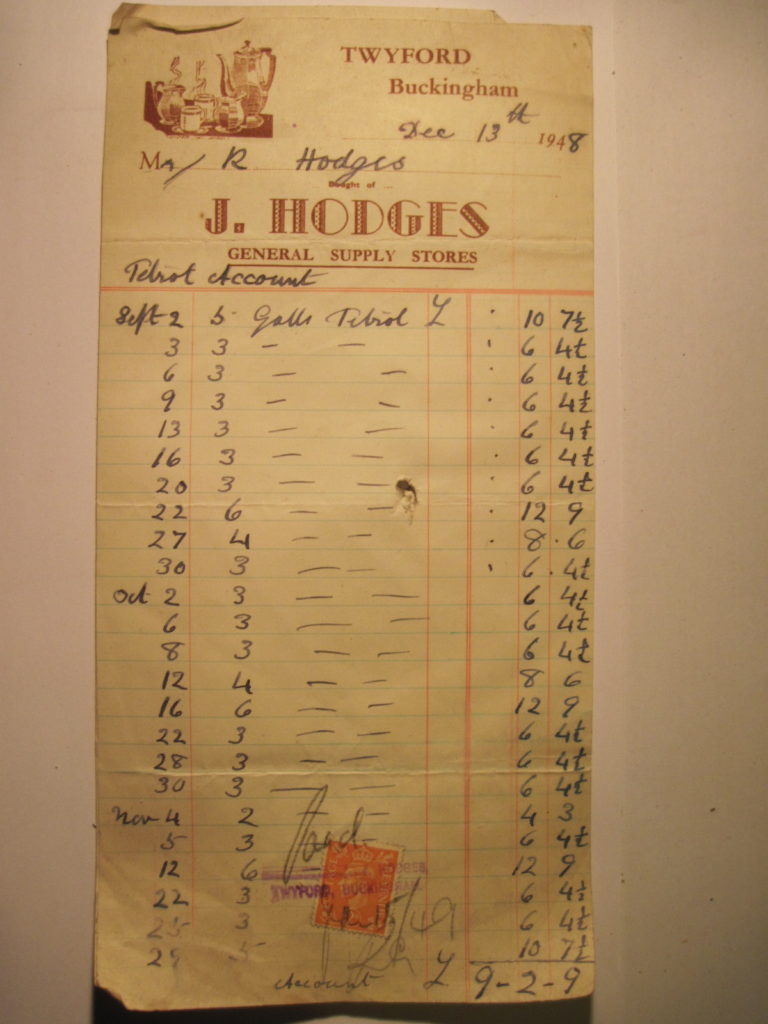 TWYFORD
Buckingham
Dec 13th 1948
Mr / R Hodges
Bought of
J. HODGES
GENERAL SUPPLY STORES
Petrol Account
Sept 2 5 Galls Petrol £ 10 7½
3 3 — — 6 4½
6 3 — — 6 4½
9 3 — — 6 4½
13 3 — — 6 4½
16 3 — — 6 4½
20 3 — — 6 4½
22 6 — — 12 9
27 4 — — 8 6
30 3 — — 6 4½
Oct 2 3 — — 6 4½
6 3 — — 6 4½
8 3 — — 6 4½
12 4 — — 8 6
16 6 — — 12 9
22 3 — — 6 4½
28 3 — — 6 4½
30 3 — — 6 4½
Nov 4 2 — — 4 3
5 3 6 4½
Paid
12 6 12 9
HODGES
TWYFORD, BUCKINGHAM.
22 3 6 4½
25 3 /49 6 4½
29 5 10 7½
Account £ 9-2-9